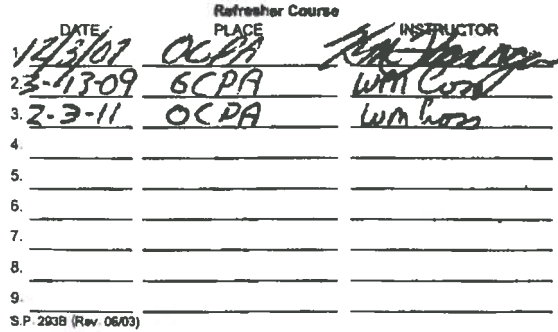 Refresher Course
DATE PLACE INSTRUCTOR
1. 12/3/07 OCPA
2. 3-13-09 GCPA Wm
3. 2-3-11 OCPA Wm
4.
5.
6.
7.
8.
9.
S.P. 293B (Rev. 06/03)